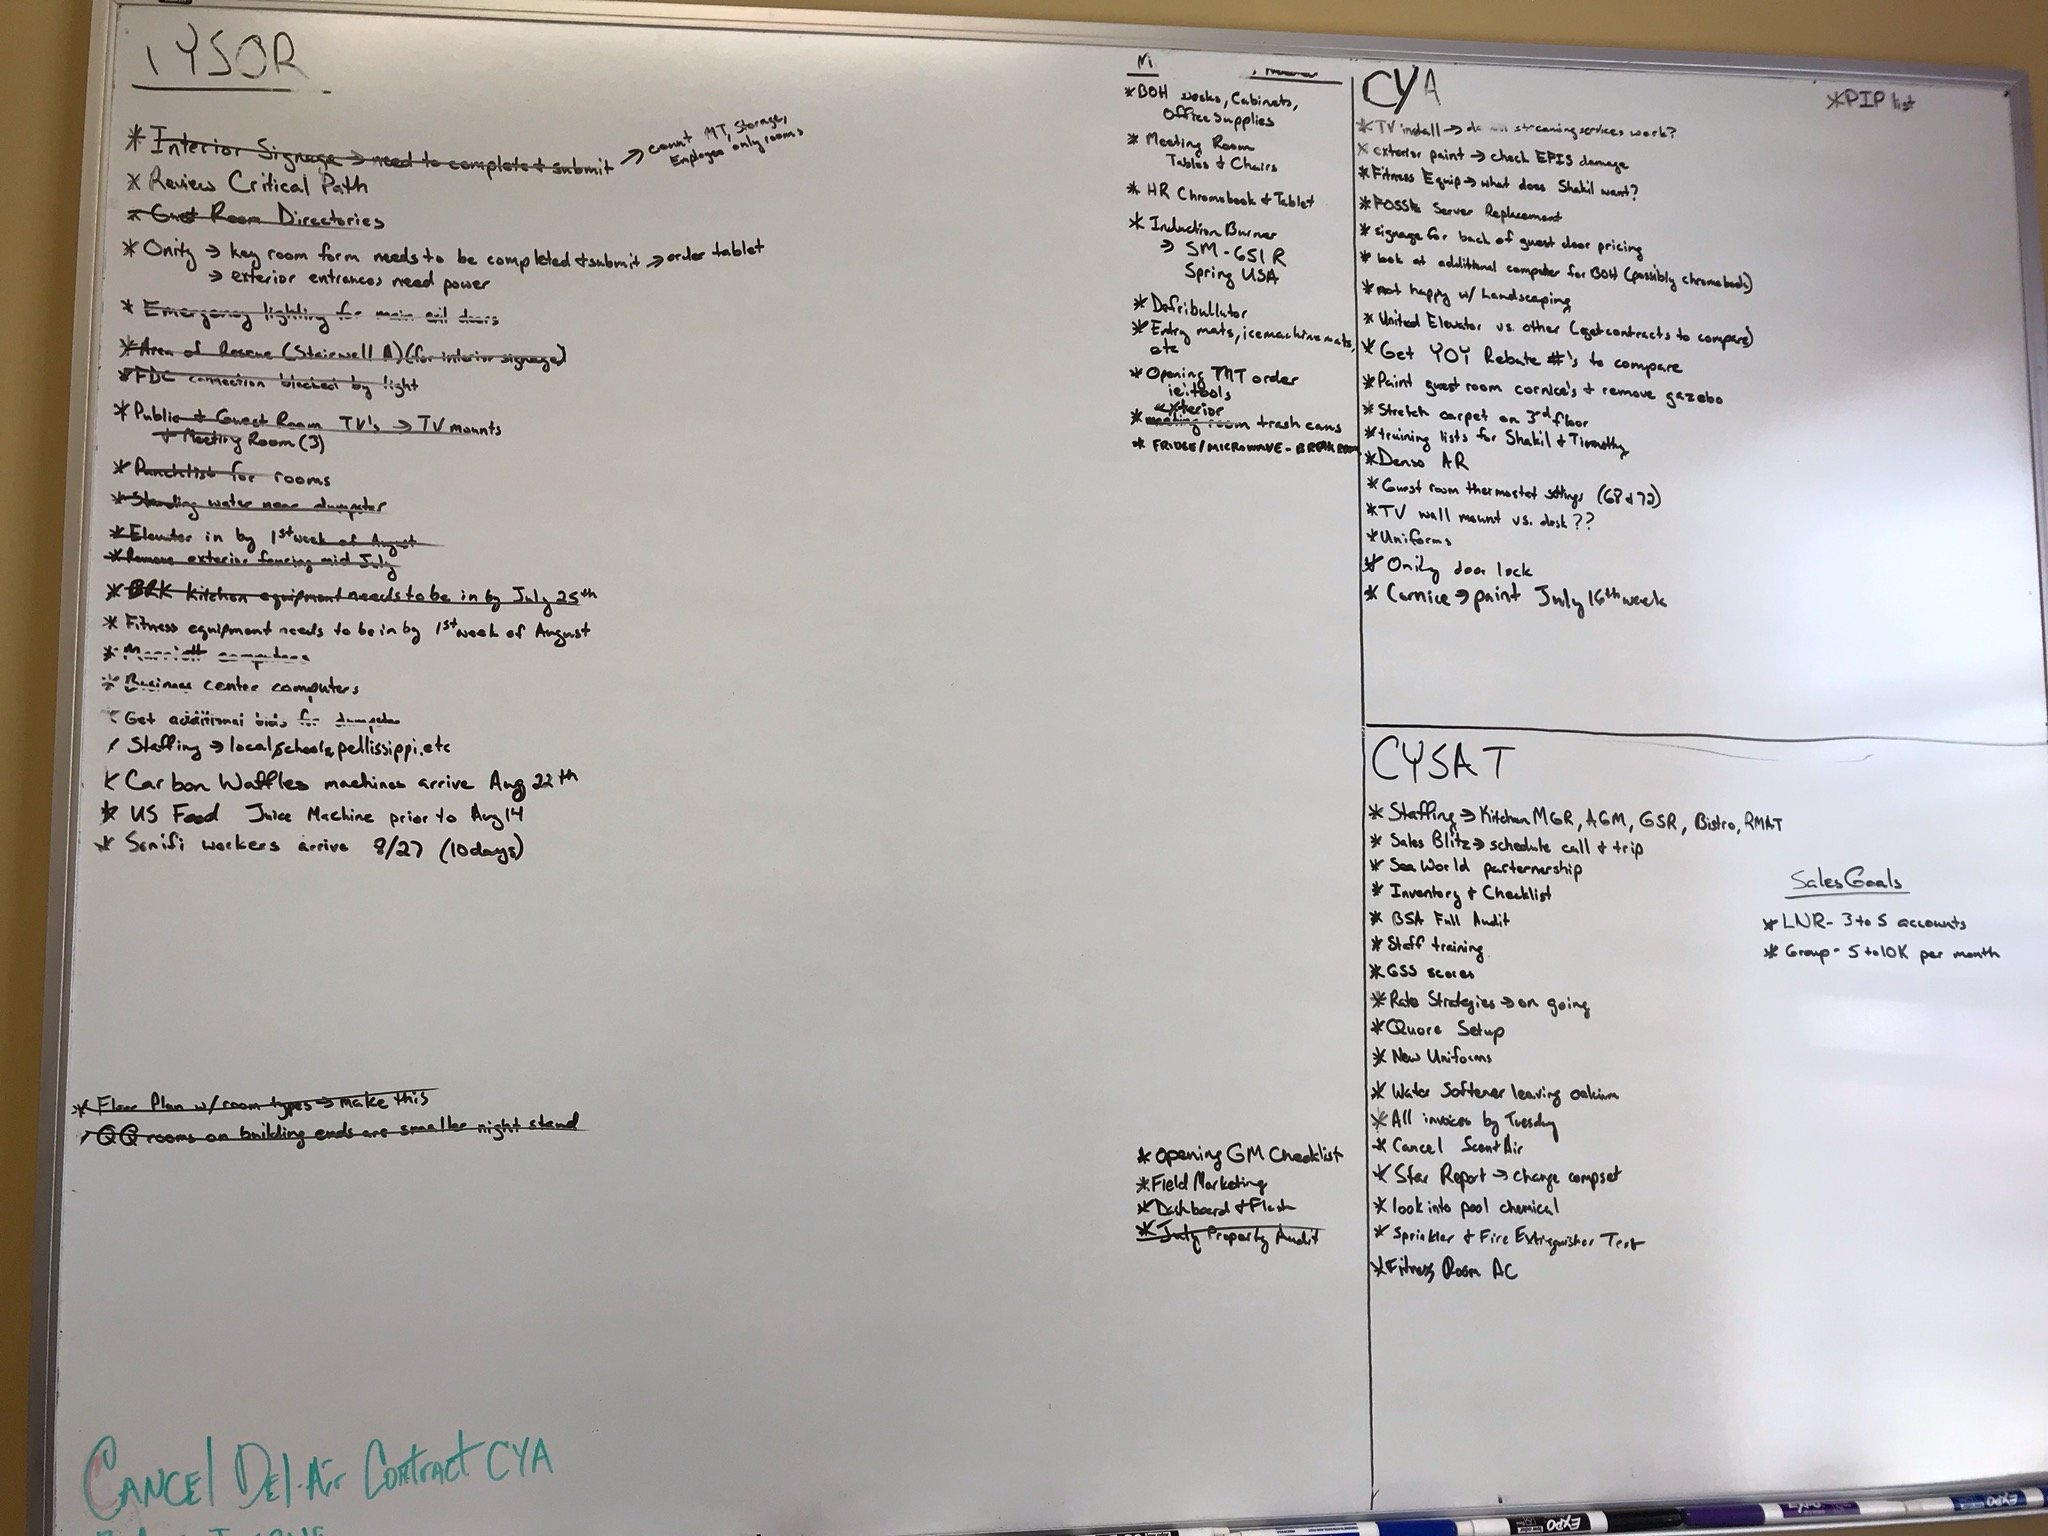 TYSOR
* Interior Signage → need to complete & submit → count MT, Storage,
Employee only rooms
* Review Critical Path
* Guest Room Directories
* Onity → key room form needs to be completed & submit → order tablet
→ exterior entrances need power
* Emergency lighting for main exit doors
* Area of Rescue (Stairwell A) (for interior signage)
* FDC connection blocked by light
* Public & Guest Room TV's → TV mounts
& Meeting Room (3)
* Punchlist for rooms
* Standing water near dumpster
* Elevator in by 1st week of August
* Remove exterior fencing mid July
* BRK Kitchen equipment needs to be in by July 25th
* Fitness equipment needs to be in by 1st week of August
* Marriott computers
* Business center computers
Get additional bids for dumpster
Staffing → local schools, pellissippi, etc
Carbon Waffles machines arrive Aug 22th
* US Food Juice Machine prior to Aug 14
* Sonifi workers arrive 8/27 (10 days)
* Floor Plan w/ room types → make this
QQ rooms on building ends are smaller night stand
CANCEL DEL-Air Contract CYA
* BOH Desks, Cabinets,
Office Supplies
* Meeting Room
Tables & Chairs
* HR Chromebook & Tablet
* Induction Burner
→ SM-651R
Spring USA
* Defribullator
* Entry mats, ice machine mats,
etc
* Opening TMT order
ie: tools
exterior
* meeting room trash cans
* FRIDGE/MICROWAVE - BREAK ROOM
* Opening GM Checklist
* Field Marketing
* Dashboard & Flash
* July Property Audit
CYA
* PIP list
* TV install → do streaming services work?
* exterior paint → check EFIS damage
* Fitness Equip → what does Shakil want?
* FOSSE Server Replacement
* signage for back of guest door pricing
* look at additional computer for BOH (possibly chromebook)
* not happy w/ Landscaping
* United Elevator vs. other (get contracts to compare)
* Get YOY Rebate #'s to compare
* Paint guest room cornice's & remove gazebo
* Stretch carpet on 3rd floor
* training lists for Shakil & Timothy
* Denso AR
* Guest room thermostat settings (68 & 72)
* TV wall mount vs. desk??
* Uniforms
* Onity door lock
* Cornice → paint July 16th week
CYSAT
* Staffing → Kitchen MGR, AGM, GSR, Bistro, RMAT
* Sales Blitz → schedule call & trip
* Sea World parternership
* Inventory & Checklist
* BSA Full Audit
* Staff training
* GSS scores
* Rate Strategies → on going
* Quore Setup
* New Uniforms
* Water Softener leaving calcium
* All invoices by Tuesday
* Cancel ScentAir
* Star Report → change compset
* look into pool chemical
* Sprinkler & Fire Extinguisher Test
* Fitness Room AC
Sales Goals
* LNR - 3 to 5 accounts
* Group - 5 to 10K per month
EXPO
EXPO